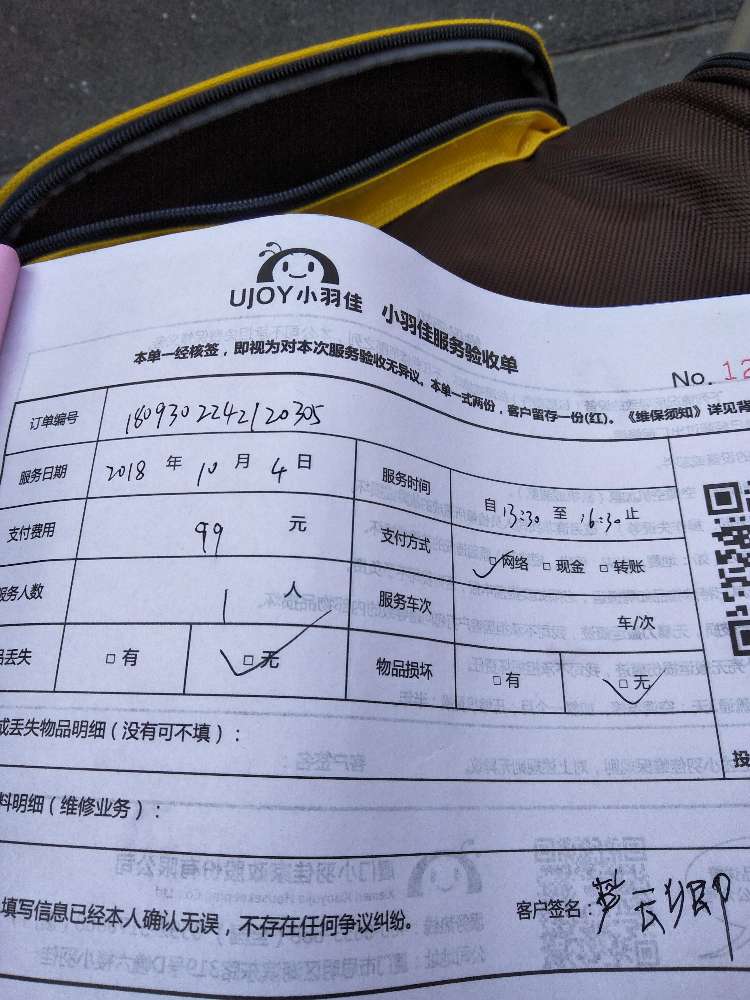 UJOY小羽佳 小羽佳服务验收单
No. 12
本单一经核签，即视为对本次服务验收无异议。本单一式两份，客户留存一份(红)。《维保须知》详见背
订单编号 1809302242120305
服务日期 2018 年 10 月 4 日 服务时间 自 13:30 至 16:30 止
支付费用 99 元 支付方式 □网络 □现金 □转账
服务人数 1 人 服务车次 车/次
丢失 □有 □无 物品损坏 □有 □无
或丢失物品明细（没有可不填）：
料明细（维修业务）：
填写信息已经本人确认无误，不存在任何争议纠纷。 客户签名：
投